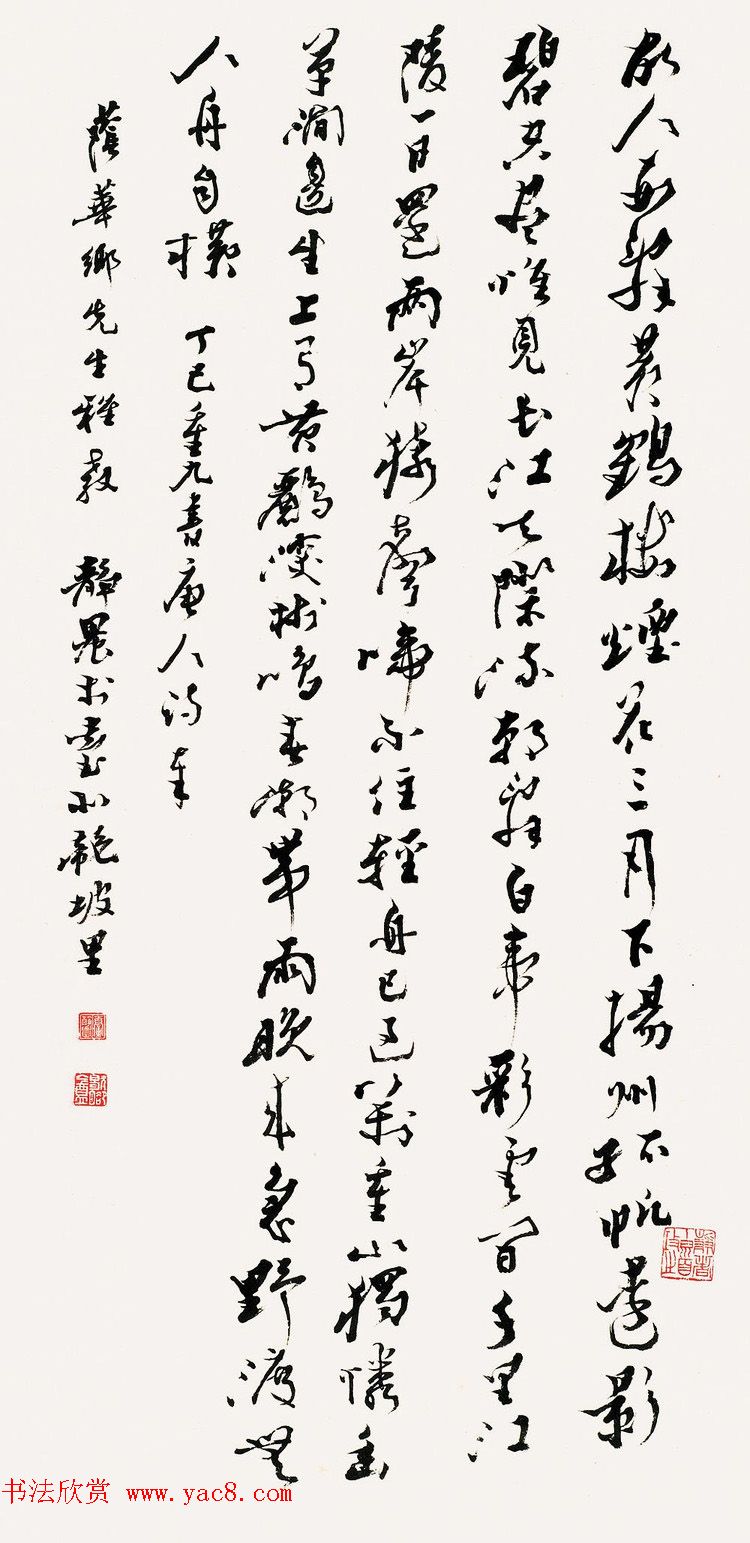 故人西辭黃鶴樓煙花三月下揚州孤帆遠影
碧空盡唯見長江天際流朝辭白帝彩雲間千里江
陵一日還兩岸猿聲啼不住輕舟已過萬重山獨憐幽
草澗邊生上有黃鸝深樹鳴春潮帶雨晚來急野渡無
人舟自橫 丁巳重九書唐人詩奉
蔭華鄉先生雅教 靜農於臺北龍坡里
书法欣赏 www.yac8.com